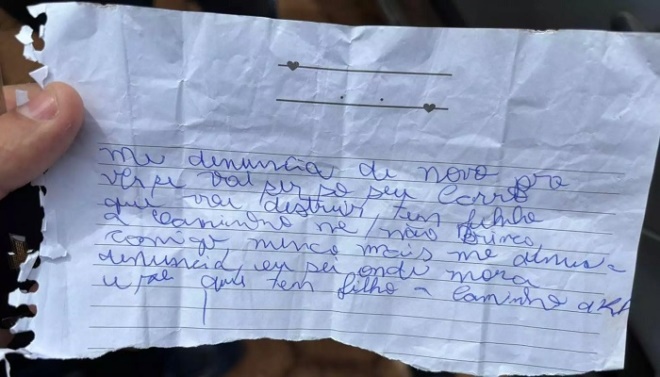 me denuncia de novo pra
ver se vai ser so seu carro
que vai destruir, tem filho
a caminho ne, não brinca
comigo nunca mais me denun-
denuncia, eu sei onde mora
e que tem filho a caminho